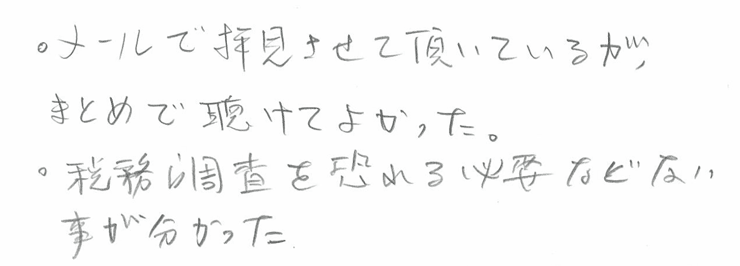 。メールで拝見させて頂いているが、
まとめで聴けてよかった。
。税務調査を恐れる必要などない
事が分かった